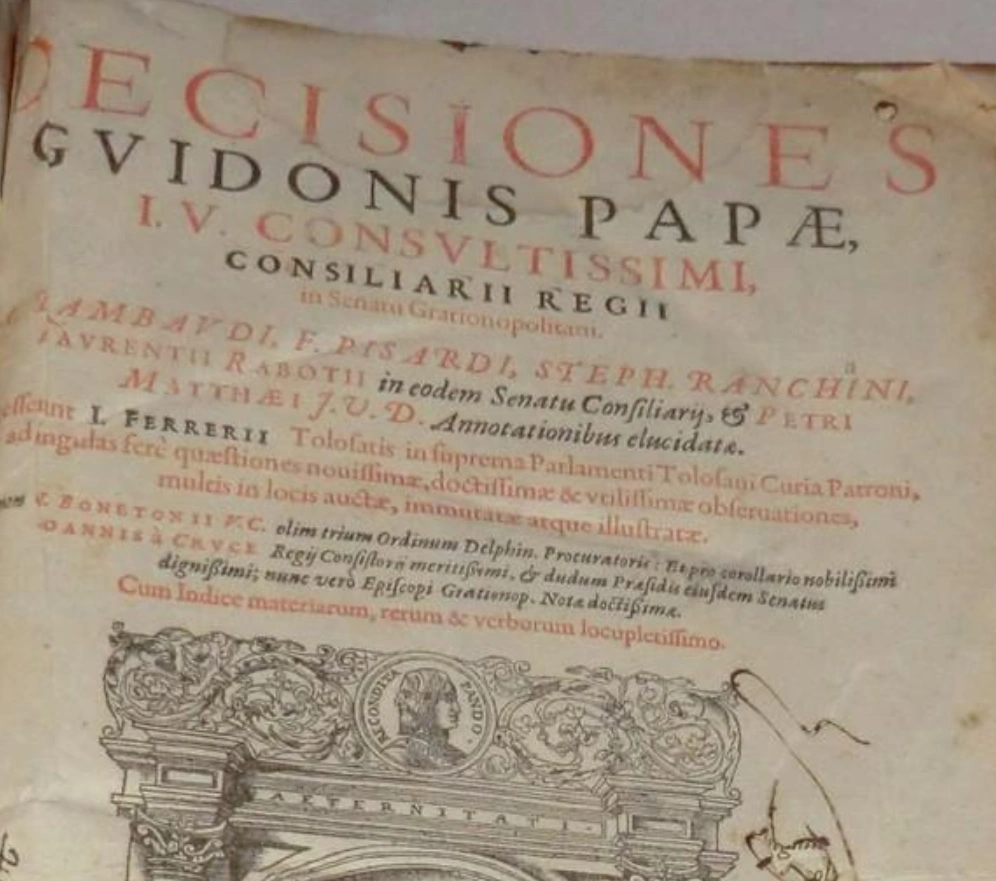 DECISIONES
GVIDONIS PAPÆ,
I. V. CONSVLTISSIMI,
CONSILIARII REGII
in Senatu Grationopolitani.
RAMBAVDI, F. PISARDI, STEPH. RANCHINI,
LAVRENTII RABOTII in eodem Senatu Consiliarij, & PETRI
MATTHÆI J. U. D. Annotationibus elucidatæ.
I. FERRERII Tolosatis in suprema Parlamenti Tolosani Curia Patroni,
ad singulas ferè quæstiones nouissimæ, doctissimæ & vtilissimæ obseruationes,
multis in locis auctæ, immutatæ atque illustratæ.
C. BONETONII V. C. olim trium Ordinum Delphin. Procuratoris: Et pro corollario nobilissimi
IOANNIS à CRVCE Regij Consistorij meritissimi, & dudum Præsidis eiusdem Senatus
dignissimi; nunc verò Episcopi Grationop. Notæ doctissimæ.
Cum Indice materiarum, rerum & verborum locupletissimo.
RECONDITA PANDO
AETERNITATI